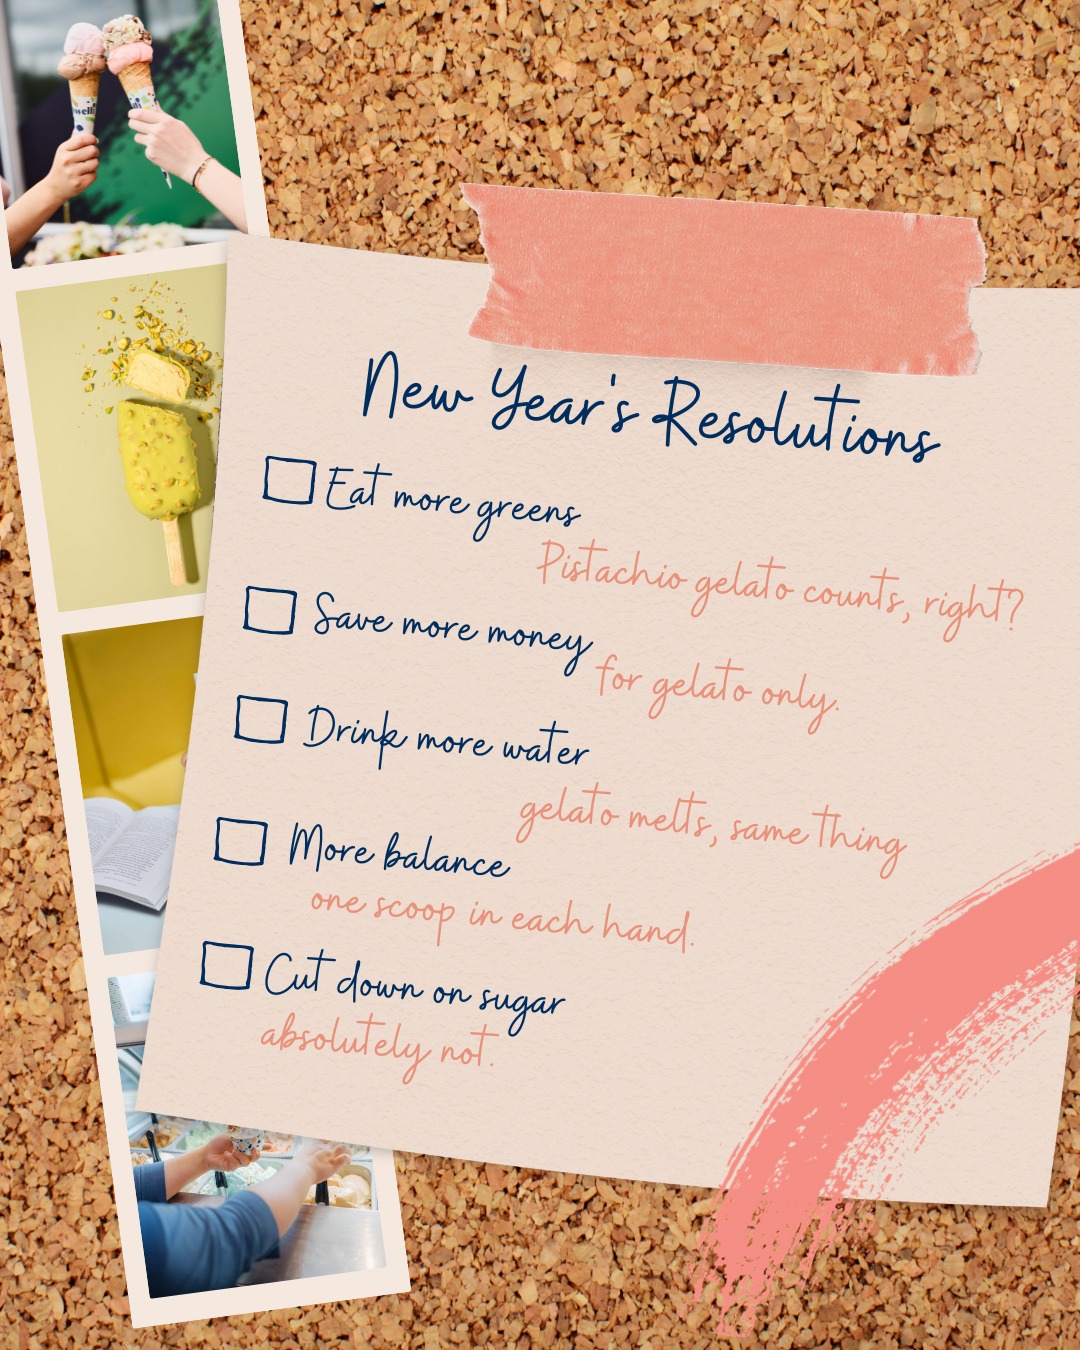 New Year's Resolutions
Eat more greens
Pistachio gelato counts, right?
Save more money
for gelato only.
Drink more water
gelato melts, same thing
More balance
one scoop in each hand.
Cut down on sugar
absolutely not.